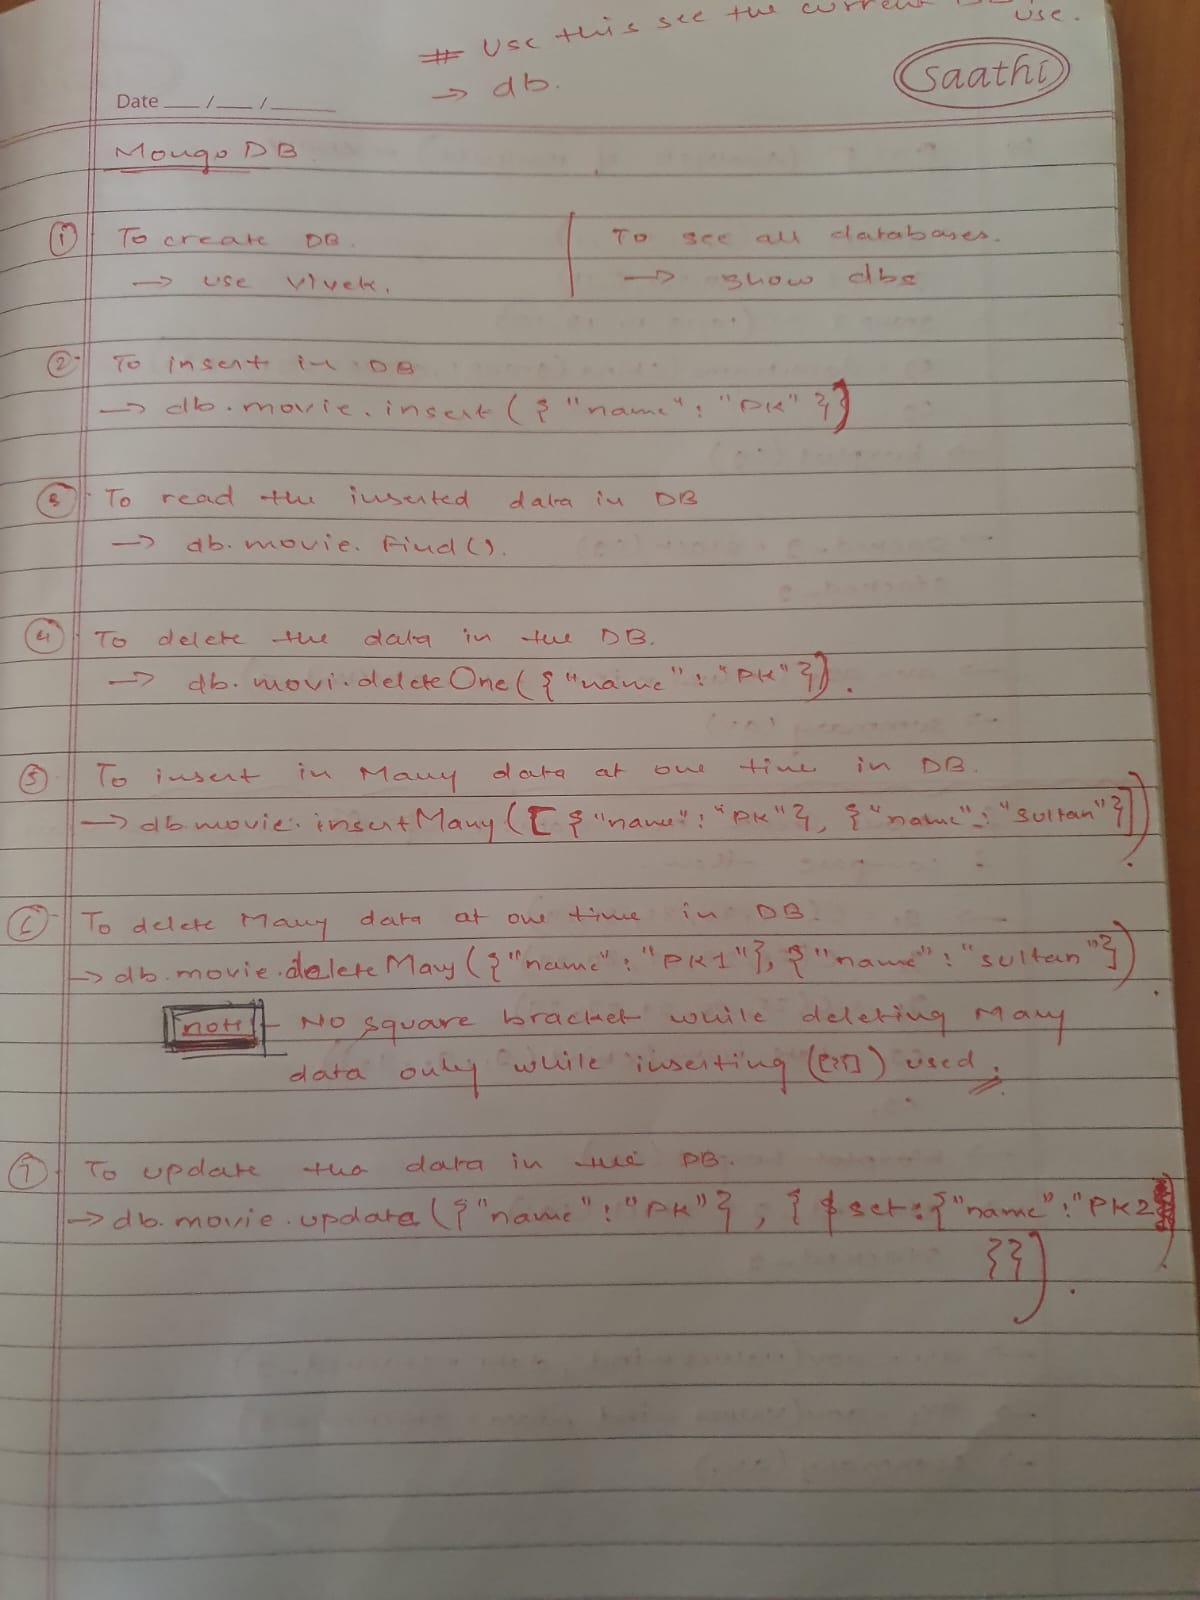 # Use this see the current
use.
→ db.
saathi
Date __/__/____
MongoDB
① To create DB. | To see all databases.
→ use vivek. | → show dbs
② To insert in DB
→ db.movie.insert({"name": "PK"})
③ To read the inserted data in DB
→ db.movie.Find().
④ To delete the data in the DB.
→ db.movi.deleteOne({"name": "PK"}).
⑤ To insert in Many data at one time in DB.
→ db.movie.insertMany([{"name": "PK"}, {"name": "Sultan"}]).
⑥ To delete Many data at one time in DB.
→ db.movie.deleteMany({"name": "PK1"}, {"name": "sultan"}).
note - No square bracket while deleting Many
data only while inserting ([{}]) used.
⑦ To update the data in the DB.
→ db.movie.update({"name": "PK"}, {$set:{"name":"PK2
}}).